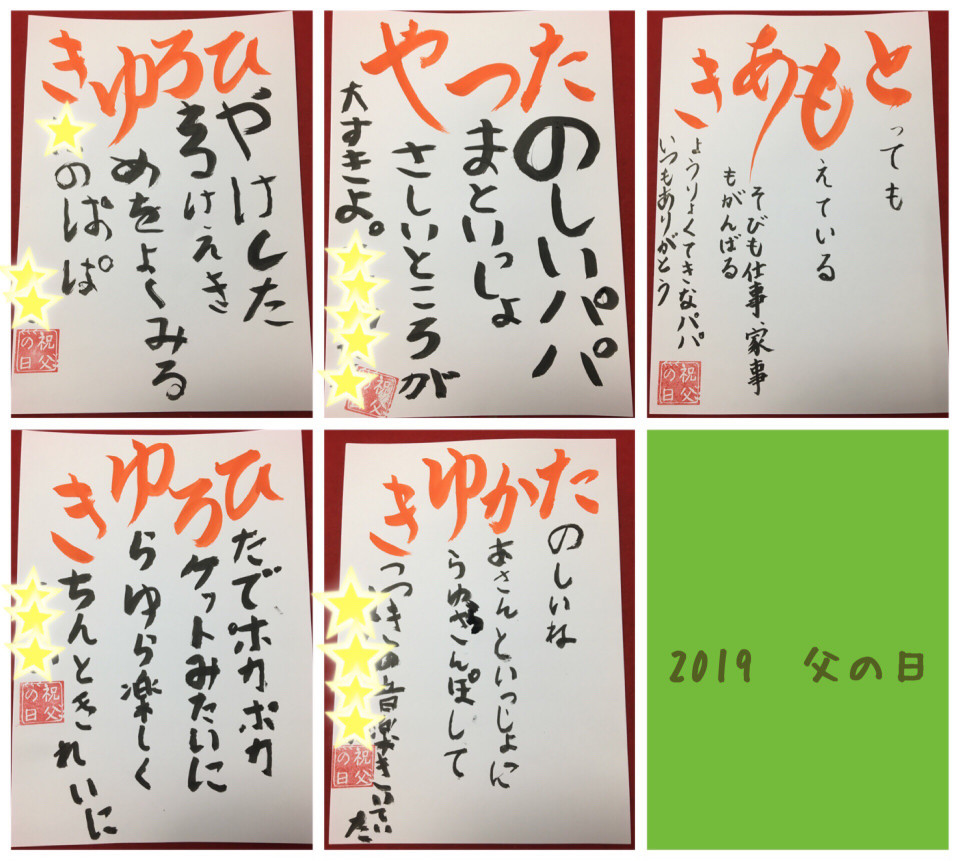 ひやけした
ろけえき
ゆめをよくみる
きのぱぱ
祝父の日
たのしいパパ
つまといっしょ
やさしいところが
大すきよ。
祝父の日
とっても
もえている
あそびも仕事、家事
もがんばる
きょうりょくてきなパパ
いつもありがとう
祝父の日
ひだでポカポカ
ろケットみたいに
ゆらゆら楽しく
きちんときれいに
祝父の日
たのしいね
かあさんといっしょに
ゆらゆらさんぽして
きっつきの音楽きいていた
祝父の日
2019 父の日